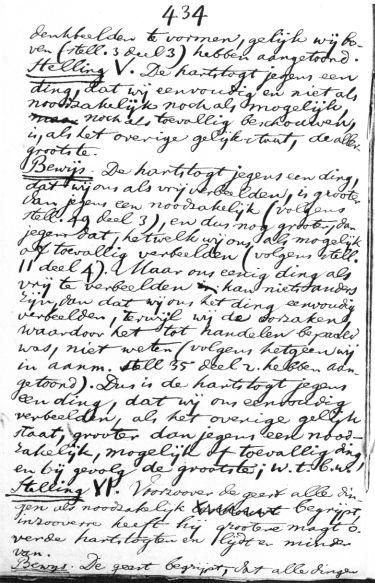 434
denkbeelden te vormen, gelijk wij bo-
ven (stell. 3 deel 3) hebben aangetoond.
Stelling V. De hartstogt jegens een
ding, dat wij eenvoudig en niet als
noodzakelijk noch als mogelijk
noch als toevallig beschouwen,
is, als het overige gelijk staat, de aller-
grootste.
Bewijs. De hartstogt jegens een ding,
dat wij ons als vrij verbeelden, is grooter
dan jegens een noodzakelijk (volgens
stell. 49 deel 3), en dus nog grooter, dan
jegens dat, hetwelk wij ons als mogelijk
of toevallig verbeelden (volgens stell.
11 deel 4). Maar ons eenig ding als
vrij te verbeelden kan niets anders
zijn, dan dat wij ons het ding eenvoudig
verbeelden, terwijl wij de oorzaken,
waardoor het tot handelen bepaald
was, niet weten (volgens hetgeen wij
in aanm. stell 35 deel 2. hebben aan-
getoond). Dus is de hartstogt jegens
een ding, dat wij ons eenvoudig
verbeelden, als het overige gelijk
staat, grooter dan jegens een nood-
zakelijk, mogelijk of toevallig ding,
en bij gevolg de grootste; w. t. b. w.
Stelling VI. Voorzoover de geest alle din-
gen als noodzakelijk begrijpt,
inzooverre heeft hij grootere magt o-
ver de hartstogten en lijdt er minder
van.
Bewijs. De geest begrijpt, dat alle dingen